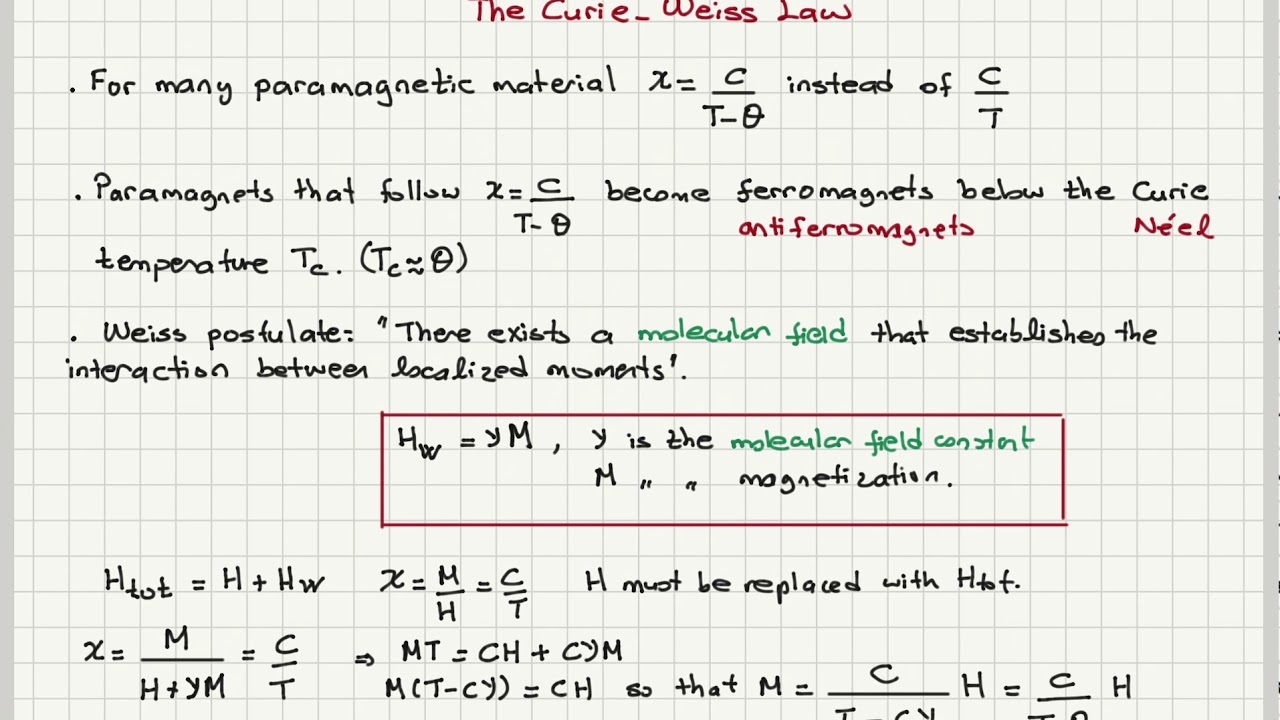 The Curie-Weiss Law
. For many paramagnetic material χ = C/(T-θ) instead of C/T
. Paramagnets that follow χ = C/(T-θ) become ferromagnets below the Curie
antiferromagnets Néel
temperature Tc. (Tc ≈ θ)
. Weiss postulate: "There exists a molecular field that establishes the
interaction between localized moments".
H_W = γM , γ is the molecular field constant
M " " magnetization.
H_tot = H + H_W χ = M/H = C/T H must be replaced with H_tot.
χ = M/(H+γM) = C/T ⇒ MT = CH + CγM
M(T-Cγ) = CH so that M = C/(T-Cγ) H = C/(T-θ) H